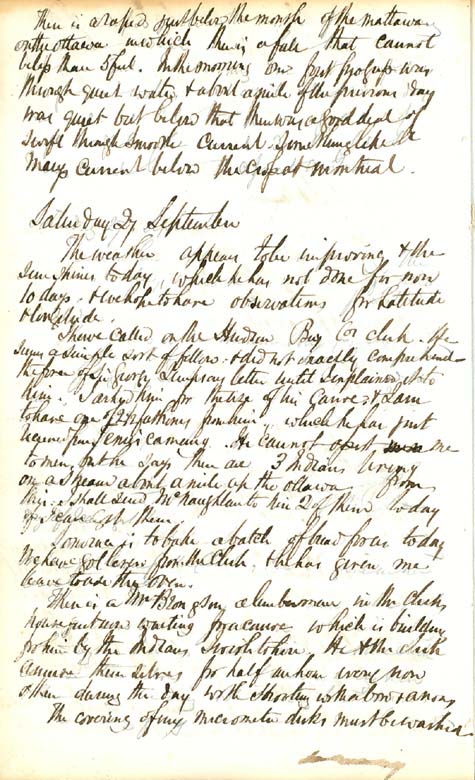 There is a rapid just below the mouth of the Mattawa
on the Ottawa in which there is a fall that cannot
be less than 5 feet. In the morning our first progress was
through quiet water & about a mile of the previous day
was quiet but below that there was a good deal of
swift though smooth current something like St
Marys current below the cross at Montreal.
Saturday 27 September
The weather appears to be improving & the
sun shines today, which he has not done for now
10 days & we hope to have observations for Latitude
& Longitude.
I have called on the Hudson Bay Co clerk. He
seems a simple sort of fellow & did not exactly comprehend
the of Sir George Simpsons letter until I explained it to
him. I asked him for the use of his Canoes & I am
to have one of 2½ fathoms from him, which he has just
. He cannot me
to men, but he says there are 3 Indians living
on a stream about a mile up the Ottawa from
this. I shall send McNaughtan to hire 2 of them today
if he can get them.
Someone is to bake a batch of bread for us today
We have got leaven from the Clerk & he has given me
leave to use the oven.
There is a Mr , a lumberman in the Clerks
house just now waiting for a canoe which is building
for him by the Indians I wish to hire. He & the Clerk
amuse themselves for half an hour every now
& then during the day with shooting with a bow & arrows
The covering of my micrometer must be washed.